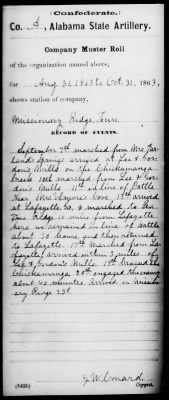 (Confederate.)
Co. A, Alabama State Artillery.
Company Muster Roll
of the organization named above,
for Aug. 31, 1863 to Oct. 31, 1863,
shows station of company,
Missionary Ridge, Tenn
RECORD OF EVENTS.
September 7th marched from
Springs arrived at Lee & Gor-
don's Mills on the Chickamauga
Creek 10th marched from Lee & Gor-
don's Mills. 11th in line of Battle
Near McLemore's Cove. 13th arrived
at Lafayette Ga. & marched to
Ridge 10 miles from Lafayette
here we remained in line of battle
about 30 hours, and then returned
to Lafayette. 17th Marched from La-
fayette arrived within 3 miles of
Lee & Gordon's Mills. 19th Crossed the
Chickamauga 20th engaged the enemy
about 40 minutes arrived on Mission-
ary Ridge 23d.
(642b)
Copyist.